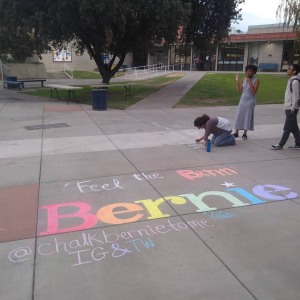 "Feel the Bern"
Bernie
@Chalkbernietome
IG & TW